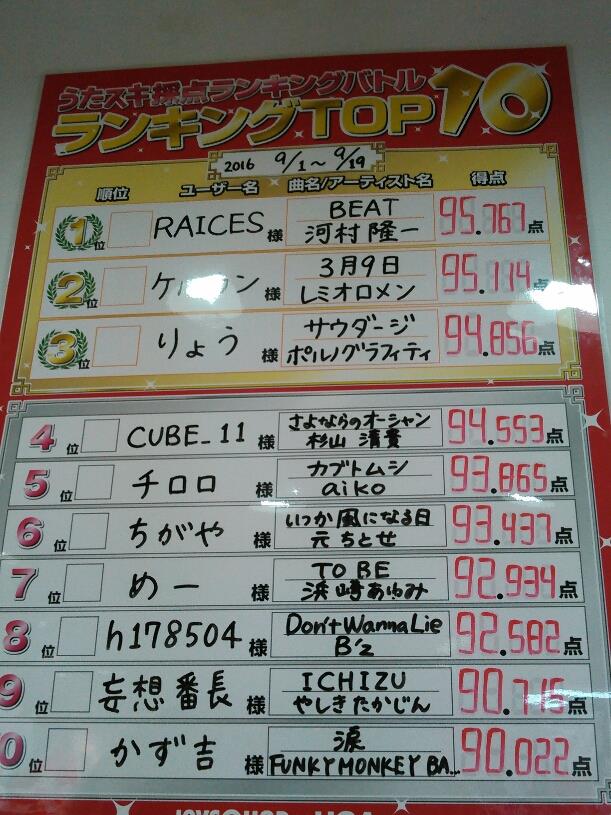 うたスキ採点ランキングバトル
ランキングTOP10
2016 9/1～9/19
順位 ユーザー名 曲名/アーティスト名 得点
1位 RAICES様 BEAT 95.767点
河村隆一
2位 様 3月9日 95.114点
レミオロメン
3位 りょう様 サウダージ 94.856点
ポルノグラフィティ
4位 CUBE_11様 さよならのオーシャン 94.553点
杉山清貴
5位 チロロ様 カブトムシ 93.865点
aiko
6位 ちがや様 いつか風になる日 93.437点
元ちとせ
7位 めー様 TO BE 92.934点
浜崎あゆみ
8位 h178504様 Don't Wanna Lie 92.582点
B'z
9位 妄想番長様 ICHIZU 90.715点
やしきたかじん
10位 かず吉様 涙 90.022点
FUNKY MONKEY BA...